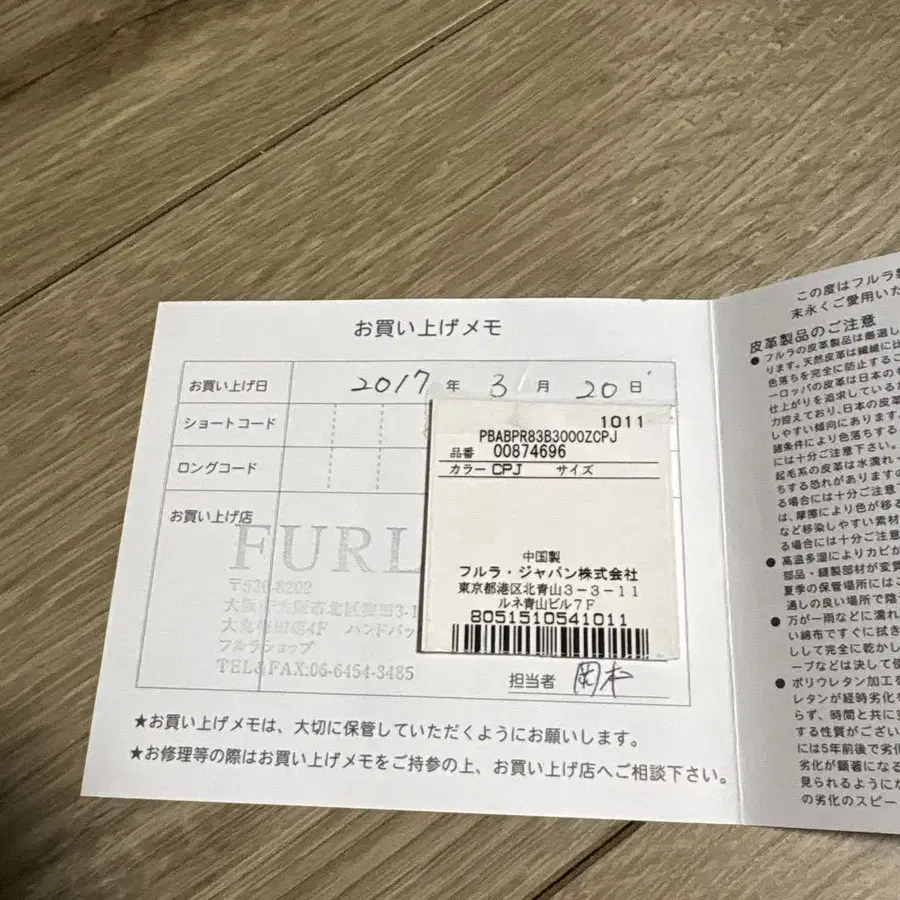 お買い上げメモ
お買い上げ日 2017 年 3 月 20 日
ショートコード
ロングコード
お買い上げ店
FURL
〒530-8202
大阪市大阪市北区梅田3-1
大丸梅田店4F ハンドバッ
フルラショップ
TEL&FAX:06-6454-3485
1011
PBABPR83B3000ZCPJ
品番 00874696
カラー CPJ サイズ
中国製
フルラ・ジャパン株式会社
東京都港区北青山3-3-11
ルネ青山ビル7F
8051510541011
担当者 岡本
★お買い上げメモは、大切に保管していただくようにお願いします。
★お修理等の際はお買い上げメモをご持参の上、お買い上げ店へご相談下さい。
この度はフルラ製
末永くご愛用いた
皮革製品のご注意
● フルラの皮革製品は厳選し
ります。天然皮革は繊維に比
色落ちを完全に防止するこ
ーロッパの皮革は日本のも
仕上がりを追求しているた
力控えており、日本の皮革
しやすい傾向にあります。
諸条件により色落ちする
には十分ご注意下さい。
起毛系の皮革は水濡れ・
ちする恐れがありますの
る場合には十分ご注意
は、摩擦により色が移る
など移染しやすい素材
る場合には十分ご注意
● 高温多湿によりカビが
部品・縫製部材が変質
夏季の保管場所にはご
通しの良い場所で陰
● 万が一雨などに濡れ
い綿布ですぐに拭き
しして完全に乾かし
ープなどは決して使
● ポリウレタン加工を
レタンが経時劣化を
らず、時間と共に変
する性質がござい
には5年前後で劣化
劣化が顕著になる
見られるようにな
の劣化のスピー